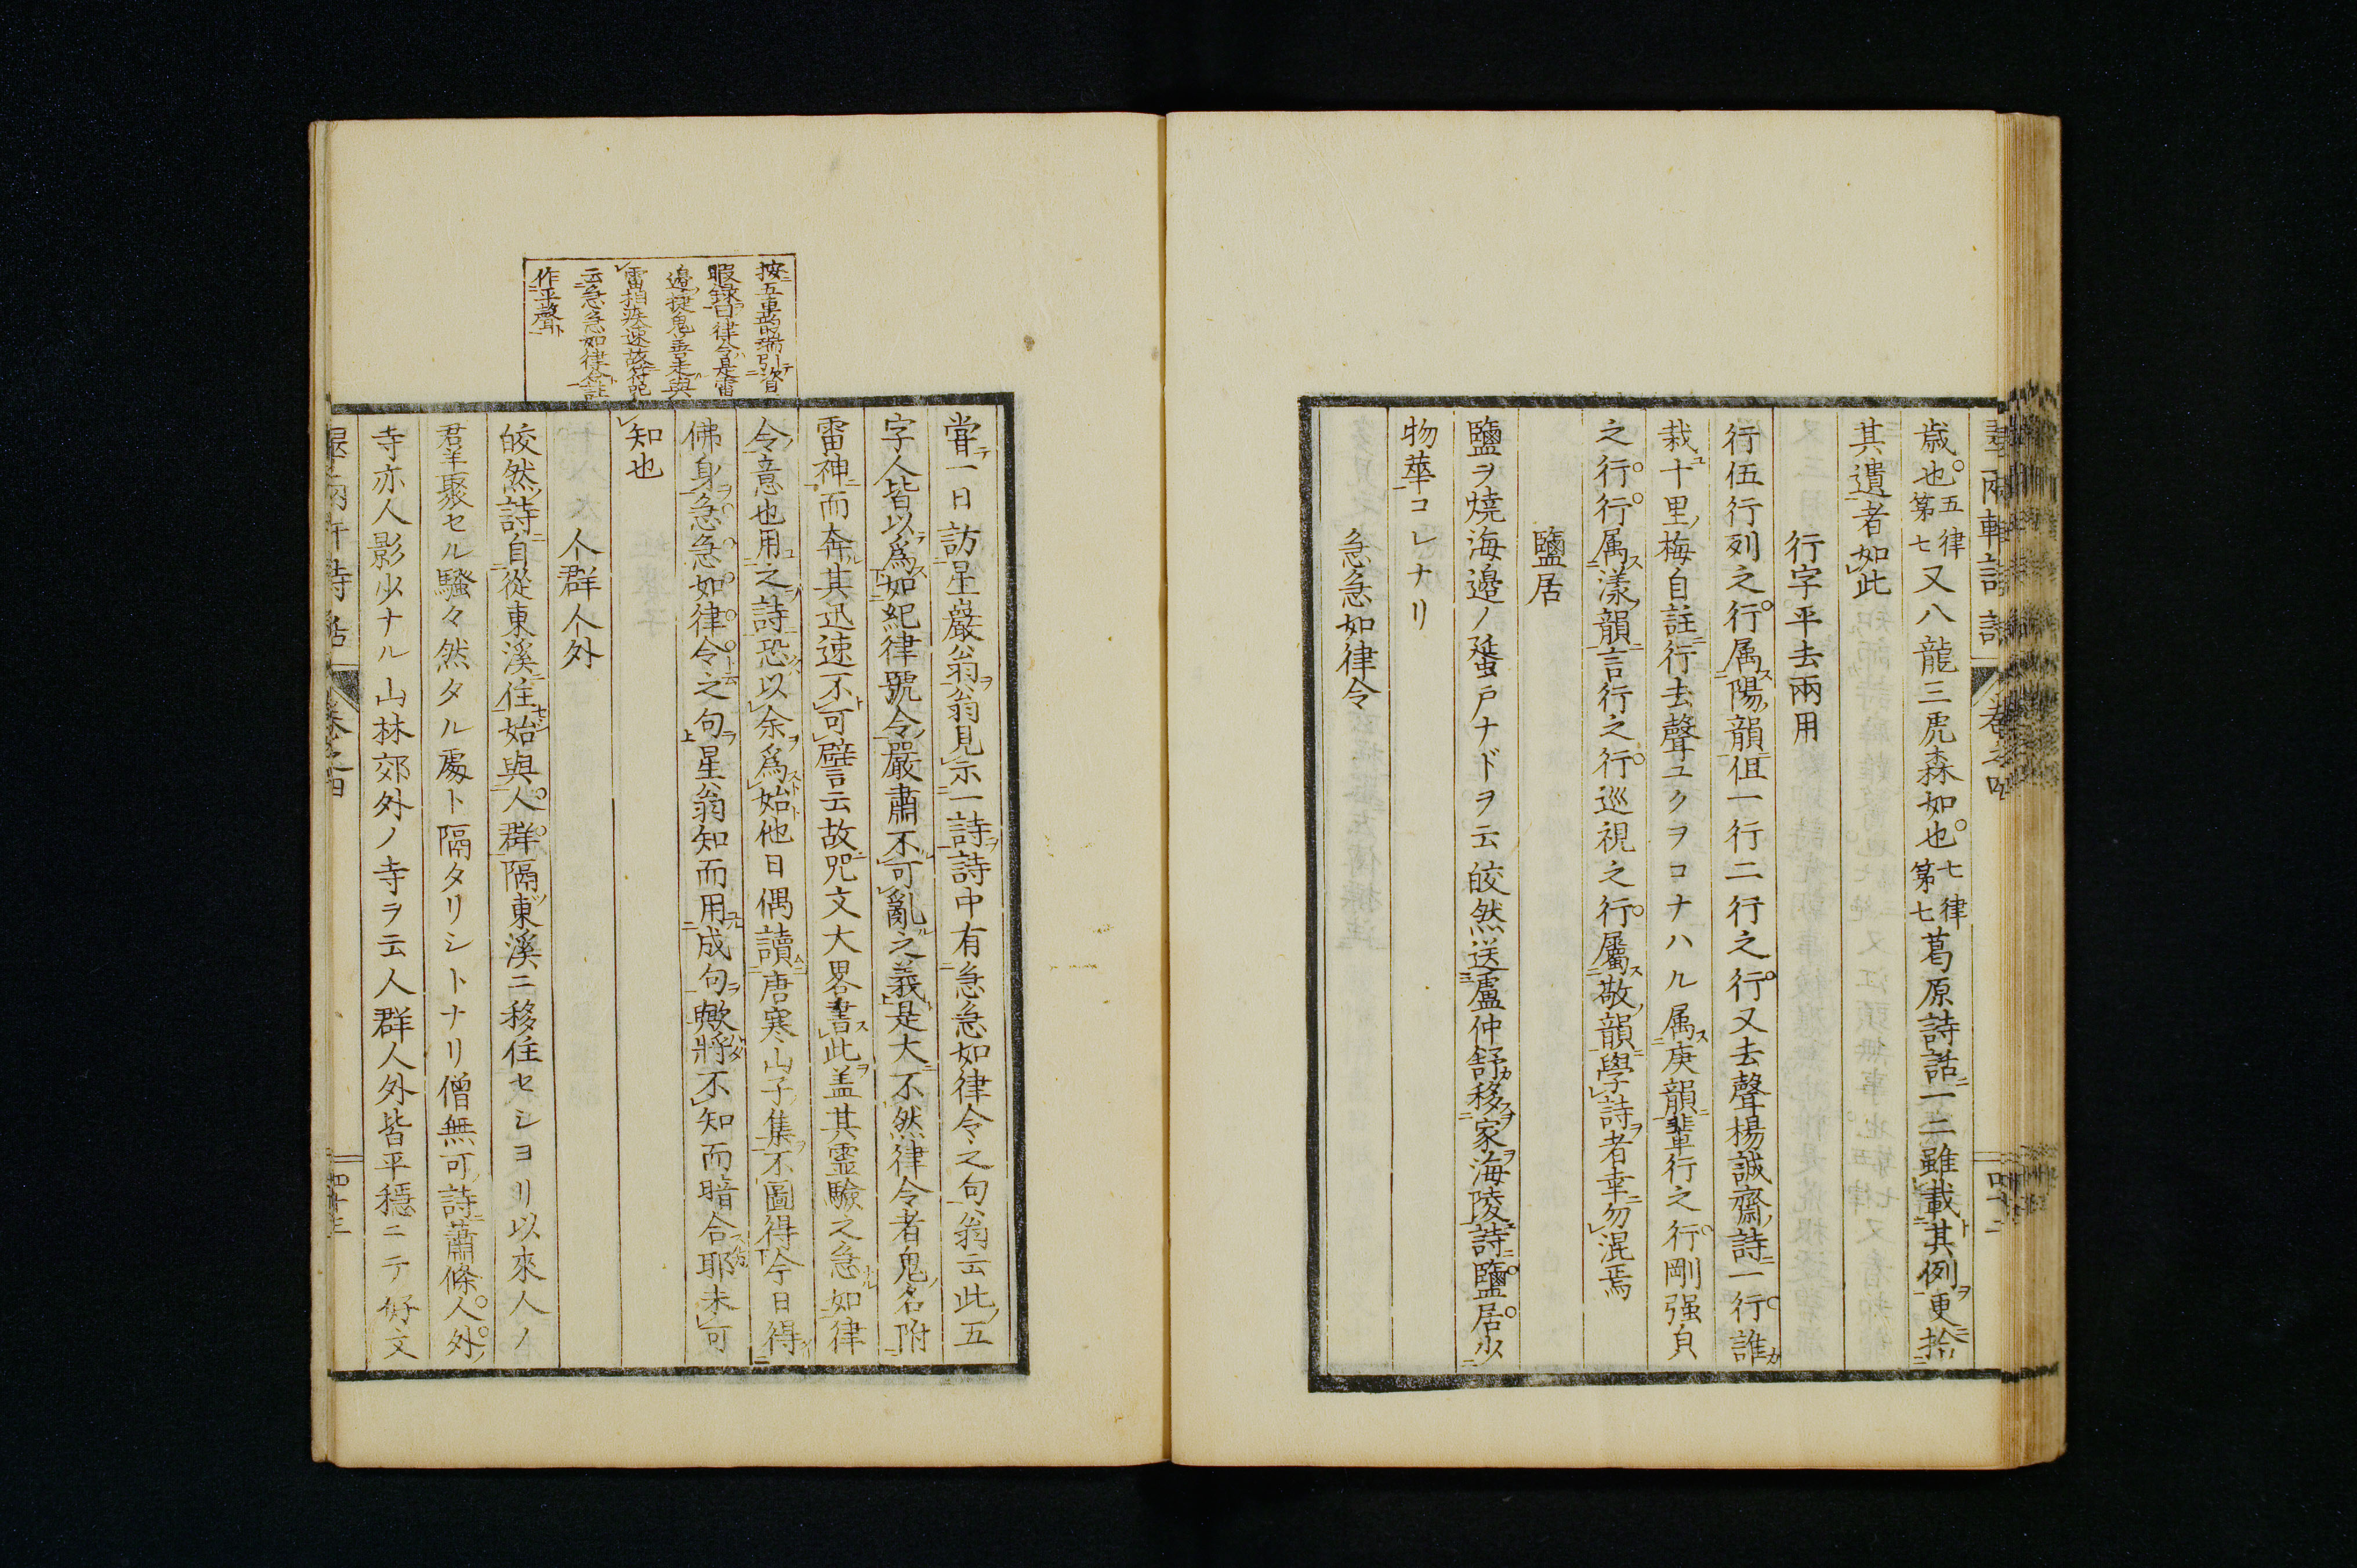 歳也五律第七又八龍三虎森如也七律第七葛原詩話ニ一二雖載其例ヲ更拾
其遺者如此
行字平去兩用
行伍行列之行属ス陽ノ韻ニ但一行二行之行又去聲楊誠齋ノ詩ニ一行誰カ
栽ユ十里ノ梅自註ニ行去聲ユクヲコナハル属ス庚韻ニ輩行之行剛强皃
之行行属ス漾ノ韻ニ言行之行巡視之行屬ス敬ノ韻ニ學詩ヲ者幸ニ勿混焉
鹽居
鹽ヲ燒海邊ノ蜑戸ナドヲ云皎然送盧仲舒カ移家ヲ海陵ニ詩ニ鹽居少
物華コレナリ
急急如律令
按五車萬瑞引資
暇録曰律令是雷
邊捷鬼善走與
雷相疾速故符呪
云急急如律令註
作平聲
嘗テ一日訪星巖翁ヲ翁見示一詩ヲ詩中有急急如律令之句翁云此ノ五
字人皆以爲如紀律號令ノ嚴肅不可亂ル之義ト是大ニ不然律令者鬼ノ名附
雷神ニ而奔ル其迅速不可譬言云故ニ咒文大畧書ス此ヲ盖其靈驗之急ナル如律
令ノ意也用ユ之ヲ詩恐以余ヲ爲ストト始他日偶讀ムニ唐寒山子ノ集ヲ不圖得今日得
佛身ヲ急急如律令ト云之句ヲ星翁知而用ユル成句ヲ歟將不知而暗合スル耶未可
知也
人群人外
皎然ノ詩ニ自從東溪ニ住セシ始與人群隔ツ東溪ニ移住セシヨリ以來人ノ
君羊聚セル騷々然タル處ト隔タリシトナリ僧無可ノ詩ニ蕭條人外ノ
寺亦人影少ナル山林郊外ノ寺ヲ云人群人外皆平穩ニテ好文
卷之四
四十三